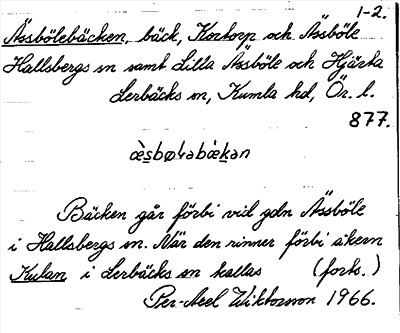 1-2.
Ässbölebäcken, bäck, Kortorp och Ässböle
Hallsbergs sn samt Lilla Ässböle och Hjärta
Lerbäcks sn, Kumla hd, Ör. l.
877.
œ̀s̲bøɬəbœ́k̲ən
Bäcken går förbi vid gdn Ässböle
i Hallsbergs sn. När den rinner förbi åkern
Kulan i Lerbäcks sn kallas (forts.)
Per-Axel Wiktorsson 1966.